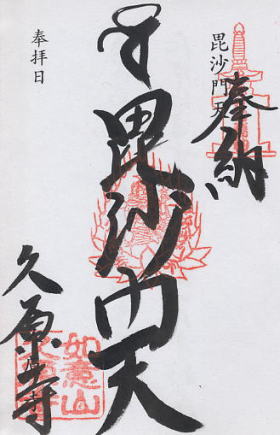 奉納
毘沙門天
毘沙門天
久原寺
奉拝日
如意山